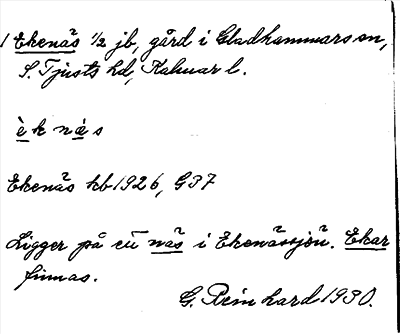 1 Ekenäs 1/2 jb, gård i Gladhammars sn,
S. Tjusts hd, Kalmar l.
è k n ǽ s
Ekenäs kb 1926, G37
Ligger på ett näs i Ekenässjön. Ekar
finnas.
G. Reinhard 1930.